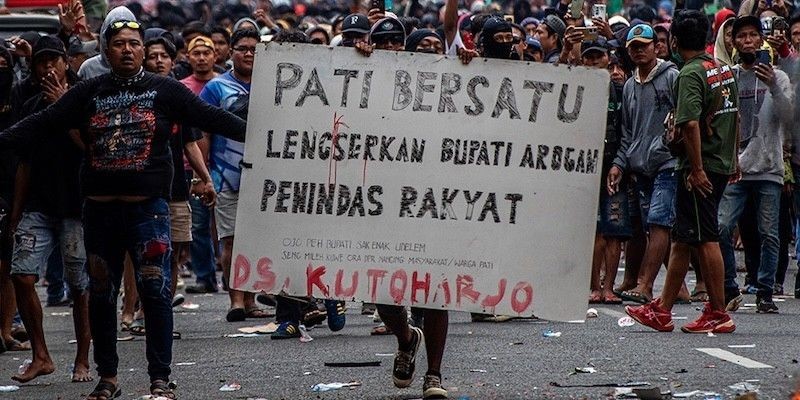 PATI BERSATU
LENGSERKAN BUPATI AROGAN
PENINDAS RAKYAT
OJO PEH BUPATI SAK ENAK UDELEM
SENG MILEH KOWE ORA DPR NANGING MASYARAKAT / WARGA PATI
DS. KUTOHARJO